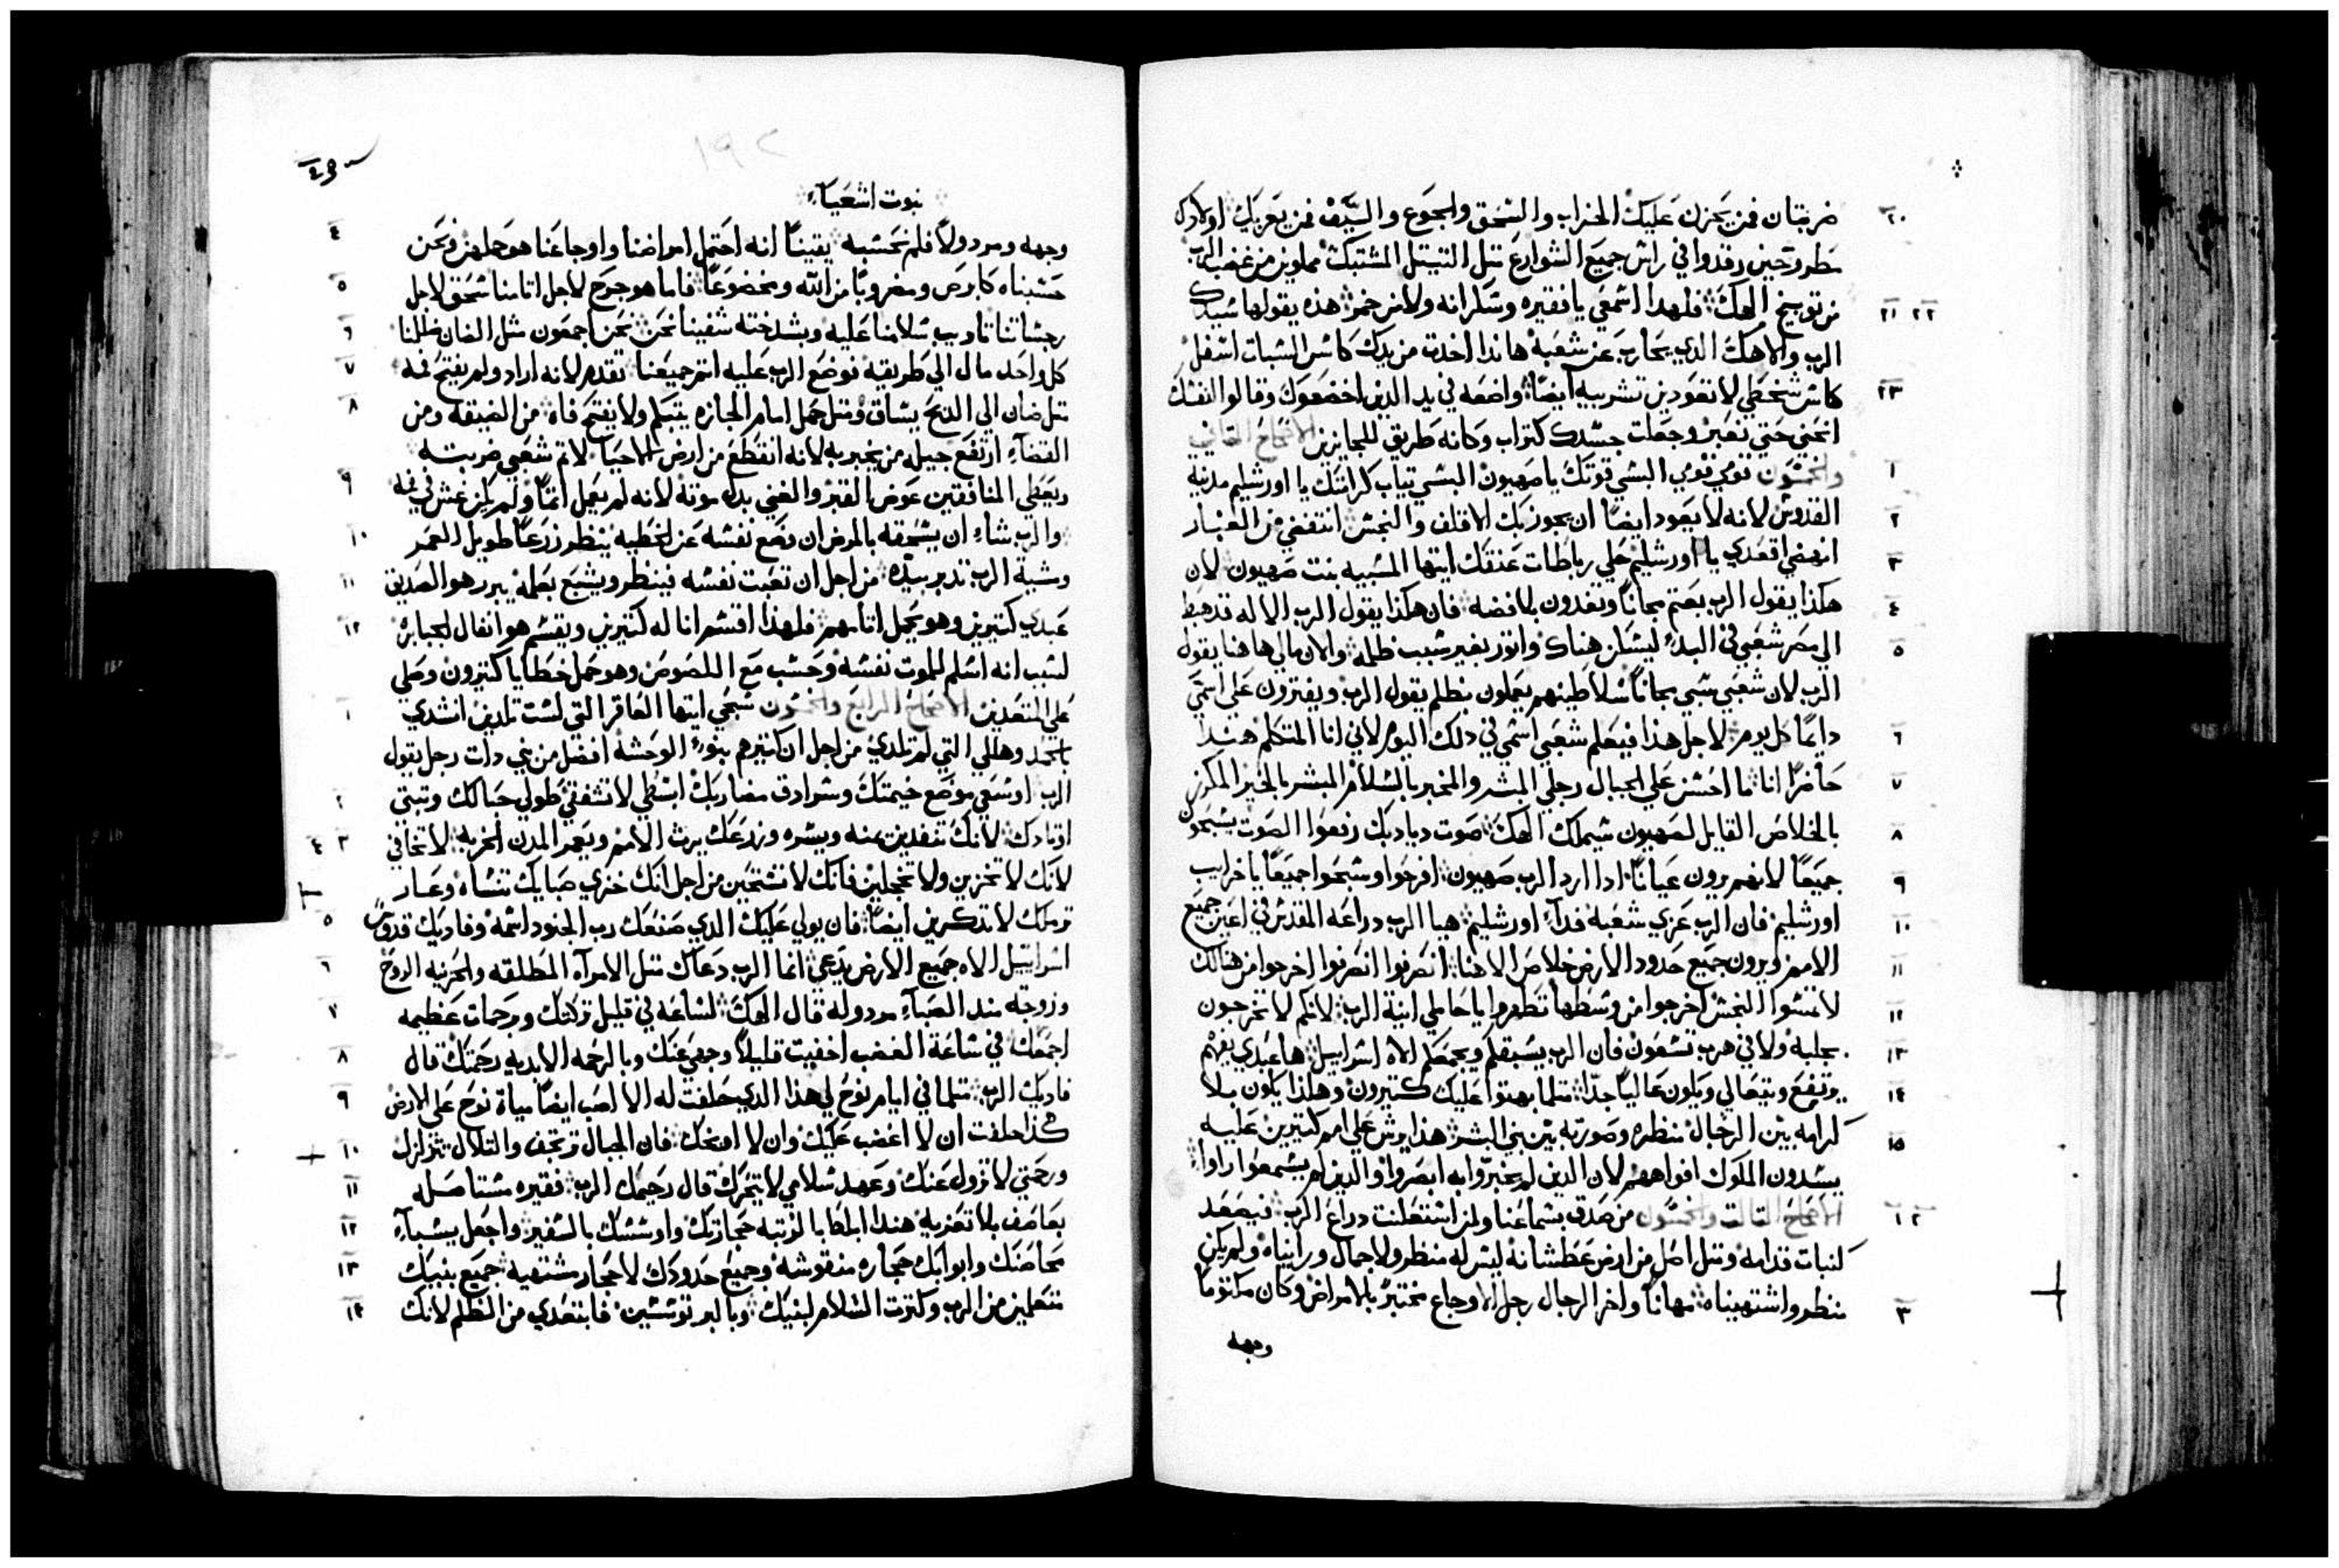 ٢٠ ضربتان فمن يحزن عليك الخراب والسحق والجوع والسيف فمن يعزيك اولادك
طرحين رقدوا في راس جميع الشوارع مثل الثيتل المشتبك مملوين من غضب الرب
٢١ ٢٢ من توبيخ الهك فلهدا اسمعي يا فقيره وسكرانه ولا من خمر هذه يقولها سيدك
الرب والاهك الدي يحارب عن شعبه هاندا اخدت من يدك كاس السبات اسفل
٢٣ كاس سخطي لا تعودين تشربيه ايضا واضعه في يد الدين اخضعوك وقالوا لنفسك
انحني حتي نعبر وجعلت جسدك كتراب وكانه طريق للجايزين الاصحاح الثاني
١ والخمسون قومي قومي البسي قوتك يا صهيون البسي تياب كرامتك يا اورشليم مدينة
٢ القدوس لانه لا يعود ايضا ان يجوز بك الاقلف والنجس انتفضي من الغبار
٣ انهضي اقعدي يا اورشليم حلي رباطات عنقك ايتها المسبيه بنت صهيون لان
٤ هكذا يقول الرب بعتم مجانا وتفدون بلا فضه فان هكذا يقول الرب الاله قد هبط
٥ الي مصر شعبي في البدء ليسكن هناك واتور بغير سبب ظلمه والان مالي هاهنا يقول
الرب لان شعبي سبي مجانا سلاطينهم يعملون بظلم يقول الرب ويفترون على اسمي
٦ دايما كل يوم لاجل هذا فيعلم شعبي اسمي في ذلك اليوم لاني انا المتكلم هندا
٧ حاضرا انا ما احسن علي الجبال رجلي المبشر والمخبر بالسلام المبشر بالخير المكرز
٨ بالخلاص القايل لصهيون سيملك الهك صوت ديادبك رفعوا الصوت يسبحون
٩ جميعا لانهم يرون عيانا ادا ارد الرب صهيون افرحوا وسبحوا جميعا يا خرايب
١٠ اورشليم فان الرب عزي شعبه فدآء اورشليم هيا الرب دراعه المقدس في اعين جميع
١١ الامم ويرون جميع حدود الارض خلاص الاهنا انصرفوا انصرفوا اخرجوا من هنالك
١٢ لا تمسوا النجس اخرجوا من وسطها تطهروا يا حاملي انية الرب لانكم لا تخرجون
١٣ بجلبه ولا في هرب تسعون فان الرب يسبقكم ويجمعكم الاه اسراييل ها عبدي يفهم
١٤ يرتفع ويتعالي ويكون عاليا جدا متلما بهتوا عليك كتيرون وهكذا يكون بلا
١٥ كرامه بين الرجال منظره وصورته بين بني البشر هذا يرش علي امم كتيرين عليه
يسدون الملوك افواههم لان الدين لم يخبروا به ابصروا والدين لم يسمعوا راوا
١ ٢ الاصحاح التالت والخمسون من صدق بسماعنا ولمن استعلنت دراع الرب فيصعد
كنبات قدامه ومتل اصل من ارض عطشانه ليس له منظر ولا جمال ورايناه ولم يكن
٣ منظر واشتهيناه مهانا واخر الرجال رجل الاوجاع مختبر بالامراض وكان مكتوما
وجهه
١٩٢
نبوت اشعيآء
٤ وجهه ومردولا فلم نحسبه يقينا انه احتمل امراضنا واوجاعنا هو حملهن ونحن
٥ حسبناه كابرص ومضروبا من الله ومخضوعا فاما هو جرح لاجل اتامنا سحق لاجل
٦ رجساتنا تاديب سلامنا عليه وبشدخته شفينا نحن نحن اجمعون مثل الضان ظللنا
٧ كل واحد مال الي طريقه فوضع الرب عليه اتم جميعنا تقدم لانه اراد ولم يفتح فمه
٨ متل ضان الي الدبح يساق ومتل حمل امام الجازه يتبكم ولا يفتح فاه من الضيقه ومن
القضآء ارتفع جيله من يخبر به لانه انقطع من ارض الاحيا لاتم شعبي ضربته
٩ ويعطي المنافقين عوض القبر والغني بدل موته لانه لم يعمل اتما ولم يكن غش في فمه
١٠ والرب شاء ان يسحقه بالمرض ان وضع نفسه عن الخطيه ينظر زرعا طويل العمر
١١ ومشية الرب تدبر بيده من اجل ان تعبت نفسه فينظر ويشبع بعلمه يبرر هو الصديق
١٢ عبدي كتيرين وهو يحمل اتامهم فلهذا اقسم انا له كتيرين ويقسم هو انفال الجبابره
لسبب انه اسلم للموت نفسه وحسب مع اللصوص وهو حمل خطايا كتيرون وصلي
١ علي المتعديين الاصحاح الرابع والخمسون سبحي ايتها العاقر التي لست تلدين انشدي
بالحمد وهللي التي لم تلدي من اجل ان كتير هم بنوء الوحشه افضل من بني دات رجل يقول
٢ الرب اوسعي موضع خيمتك وسرادق مضاربك ابسطي لا تشفقي طولي حبالك وتبتي
٣ ٤ اوتادك لانك تنفدين يمنه ويسره وزرعك يرث الامم ويعمر المدن الخربه لا تخافي
لانك لا تخزين ولا تخجلين فانك لا تستحين من اجل انك خزي صبايك تنساه وعار
٥ ترملك لا تدكرين ايضا فان يولي عليك الدي صنعك رب الجنود اسمه وفاديك قدوس
٦ اسراييل الاه جميع الارض يدعي انما الرب دعاك متل الامرآه المطلقه والحزينه الروح
٧ وزوجه مند الصبآء مردوله قال الهك لساعه في قليل تركتك وبرحمات عظيمه
٨ اجمعك في ساعة الغضب اخفيت قليلا وجهي عنك وبالرحمه الابديه رحمتك قال
٩ فاديك الرب متلما في ايام نوح لي هذا الدي حلفت له الا اصب ايضا مياة نوح علي الارض
١٠ هكذا حلفت ان لا اغضب عليك وان لا اوبخك فان الجبال ترتجف والتلال تتزلزل
١١ ورحمتي لا تزول عنك وعهد سلامي لا يتحرك قال رحيمك الرب فقيره مستاصله
١٢ بعاصف بلا تعزيه هندا ابلط بالرتبه حجارتك واوسسك بالسفير واجعل يشبآء
١٣ محاصنك وابوابك حجاره منقوشه وجميع حدودك لاحجار مشتهيه جميع بنيك
١٤ متعلمين من الرب وكترت السلام لبنيك وبالبر توسسين فابتعدي من الظلم لانك